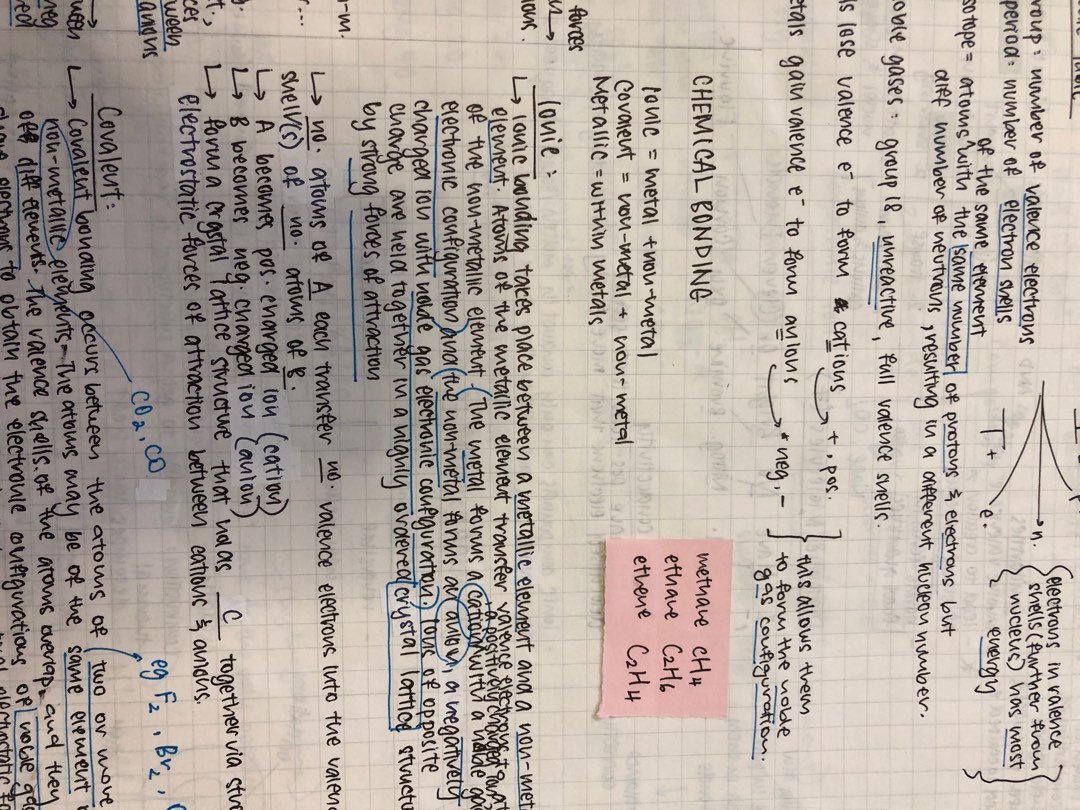 group = number of valence electrons
period = number of electron shells
isotope = atoms with the same number of protons & electrons but
of the same element
diff number of neutrons, resulting in a different nucleon number.
noble gases = group 18, unreactive, full valence shells.
lose valence e⁻ to form cations → +, pos.
gain valence e⁻ to form anions → neg, -
this allows them
to form the noble
gas configuration.
n.
e.
electrons in valence
shells (further from
nucleus) has most
energy
CHEMICAL BONDING
Ionic = metal + non-metal
Covalent = non-metal + non-metal
Metallic = within metals
methane CH4
ethane C2H6
ethene C2H4
Ionic :
↳ Ionic bonding takes place between a metallic element and a non-met
element. Atoms of the metallic element transfer valence electrons
of the non-metallic element. (The metal forms a cation with a noble gas
a positively charged
electronic configuration) and (the non-metal forms an anion, a negatively
charged ion with noble gas electronic configuration.) Ions of opposite
charge are held together in a highly ordered crystal lattice structu
by strong forces of attraction
↳ no. atoms of A each transfer no. valence electrons into the valenc
shell(s) of no. atoms of B.
↳ A becomes pos. charged ion (cation)
↳ B becomes neg. charged ion (anion)
↳ form a crystal lattice structure that holds C together via stro
electrostatic forces of attraction between cations & anions.
CO2, CO
eg F2, Br2,
Covalent :
↳ Covalent bonding occurs between the atoms of two or more
non-metallic elements. The atoms may be of the same element
of diff elements. The valence shells of the atoms overlap and they
electrons to obtain the electronic configurations of noble
forces
ions.